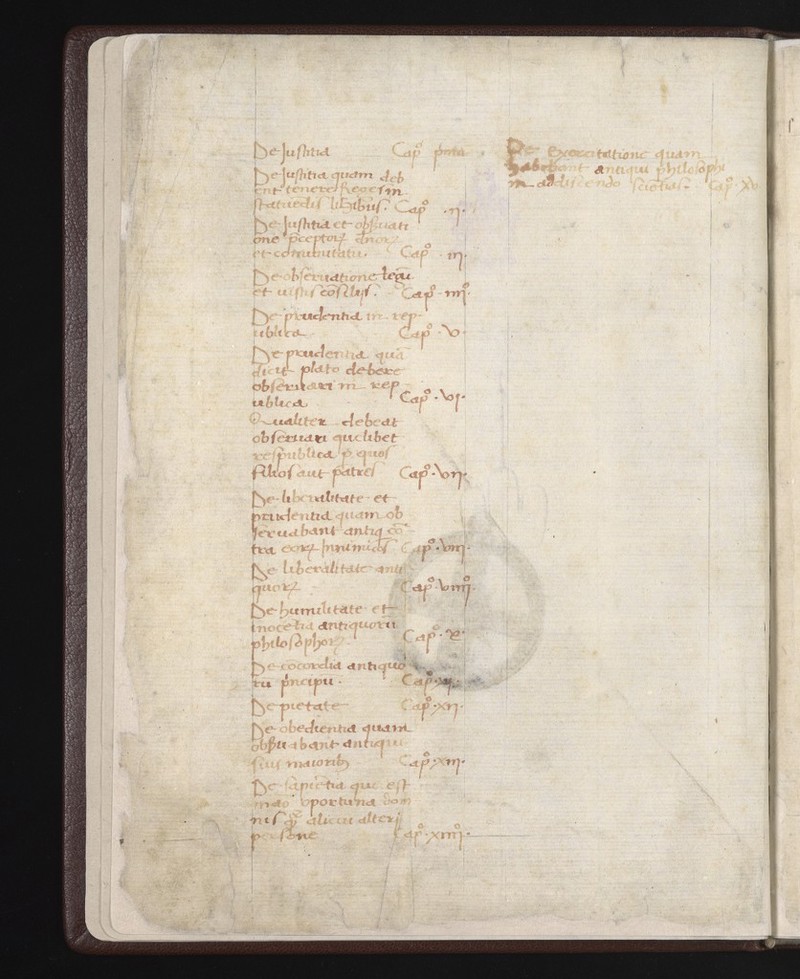 De Justitia Capº prim
De Justitia quam deb
ent tenere Reges in
statuēdis
De Justitia et obseruati
one pceptoꝝ
Capº iij
De obseruatione legū
et Capº iiij
De prudentia in rep
ublica Capº v
De prudentia quā
dicit plato debere
obseruari in rep
ublica Capº vj
Qualiter debeat
obseruari quelibet
respublica p quos
filios aut patres Capº vij
De liberalitate et
prudentia quam ob
seruabant antiq cō
tra eoꝝ Inimicos Capº viij
De liberalitate anti
quoꝝ Capº viiij
De humilitate et
inocētia antiquorū
philosophoꝝ Capº x
De cōcordia antiquo
ru pncipu Capº
De pietate Capº xij
De obedientia quam
obsuabant antiqui
suis maioribꝫ Capº xiij
De sapiētia que est
oportuna
alicui alteri
persone Capº xiiij
De Exercitatione quam
habebant antiqui philosophi
in addiscendo sciētias Capº xv